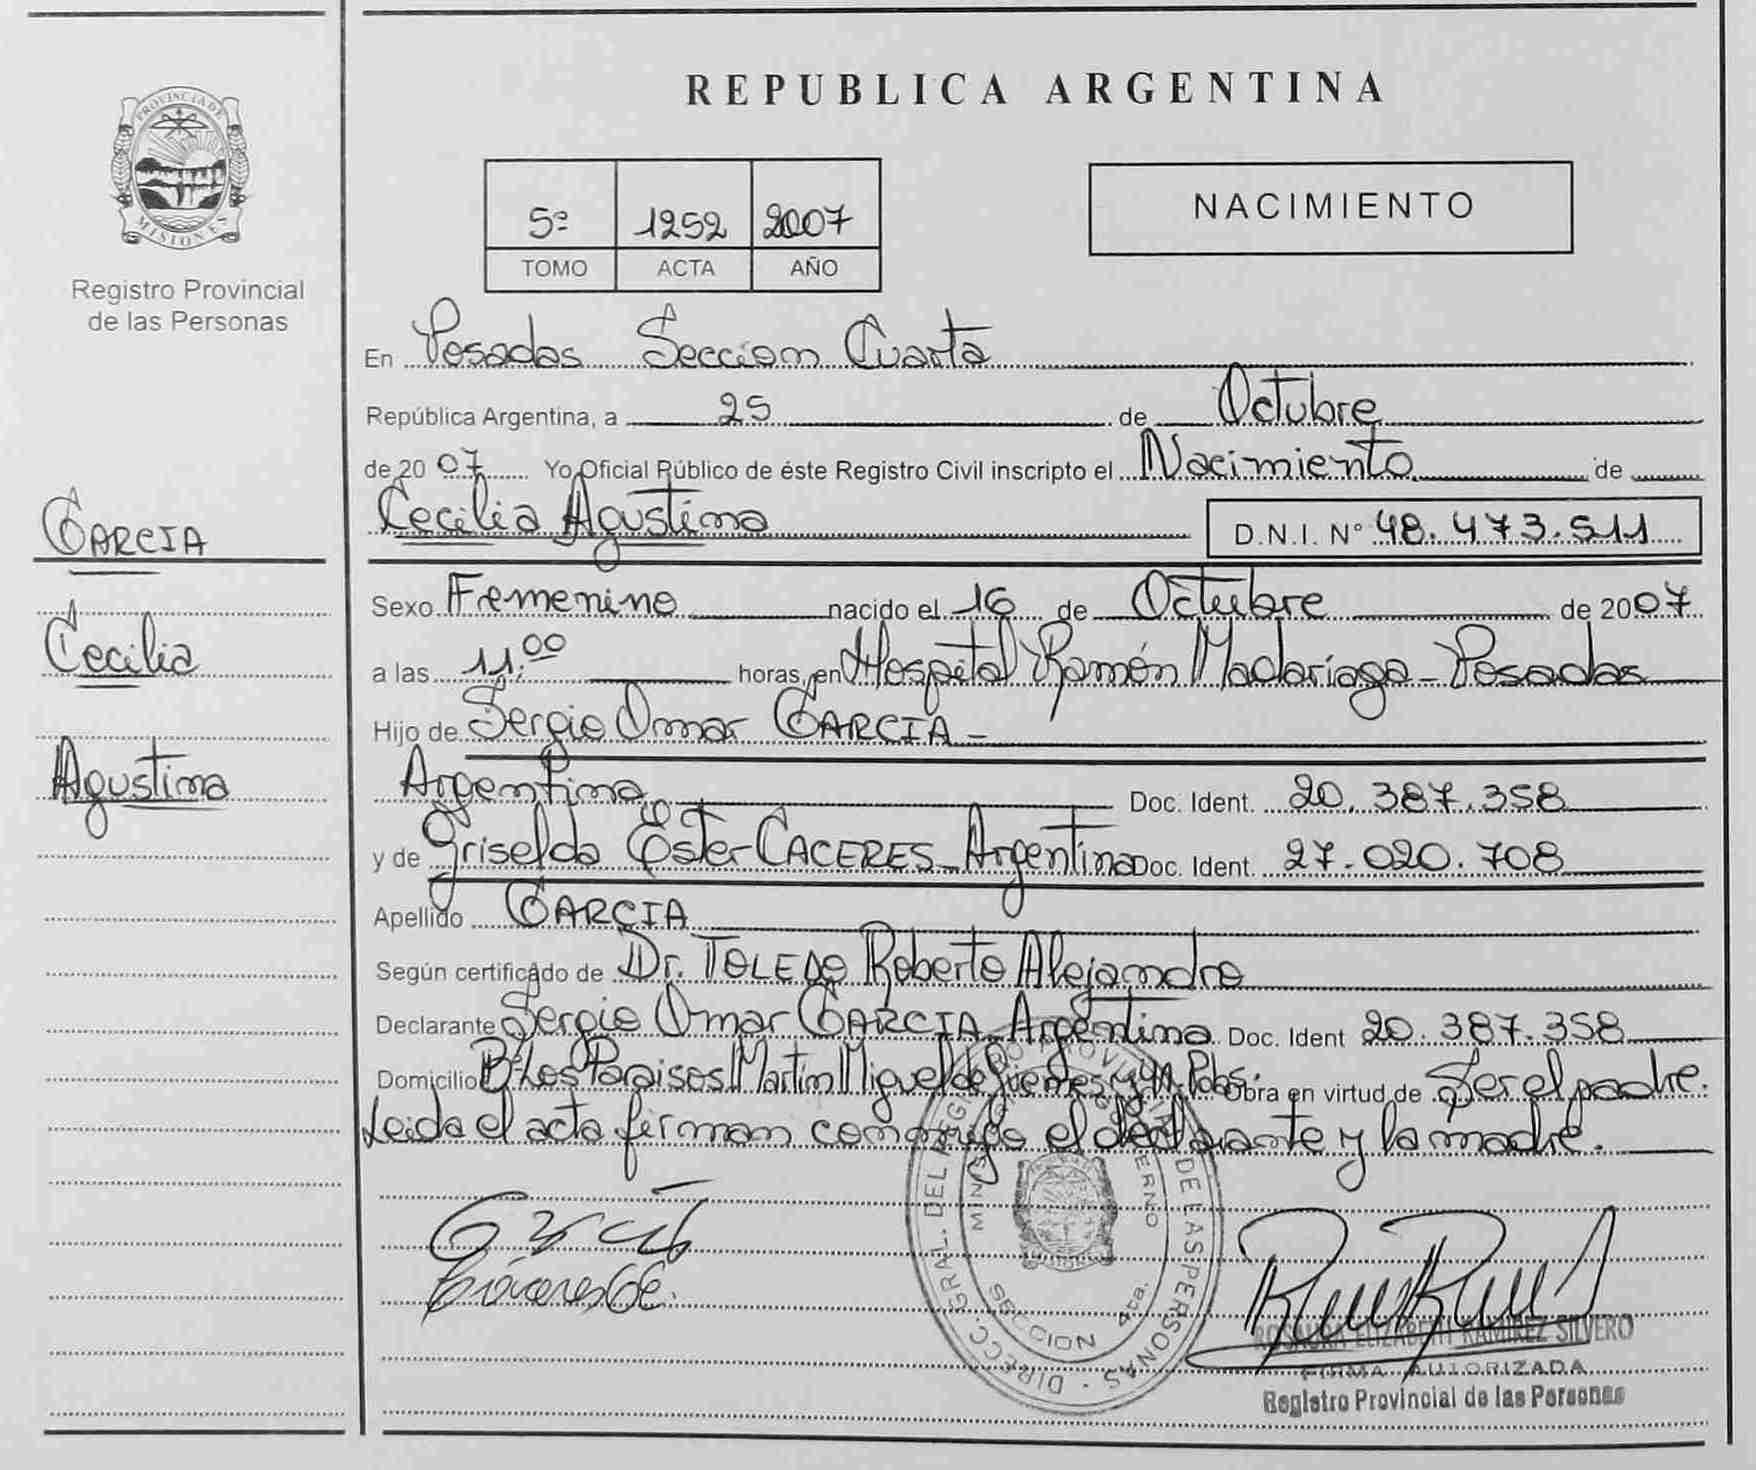 PROVINCIA DE
MISIONES
Registro Provincial
de las Personas
GARCIA
Cecilia
Agustina
REPUBLICA ARGENTINA
5º 1252 2007
TOMO ACTA AÑO
NACIMIENTO
En Posadas Seccion Cuarta
República Argentina, a 25 de Octubre
de 20 07 Yo Oficial Público de éste Registro Civil inscripto el Nacimiento de
Cecilia Agustina D.N.I. Nº 48.473.511
Sexo Femenino nacido el 16 de Octubre de 2007
a las 11:00 horas, en Hospital Ramón Madariaga - Posadas
Hijo de Sergio Omar GARCIA -
Argentino Doc. Ident. 20.387.358
y de Griselda Ester CACERES - Argentina Doc. Ident. 27.020.708
Apellido GARCIA
Según certificado de Dr. TOLEDO Roberto Alejandro
Declarante Sergio Omar GARCIA Argentino Doc. Ident 20.387.358
Domicilio Bº Los Paraisos Martin Miguel de Guemes y Obra en virtud de Ser el padre.
Leida el acta firman conmigo el declarante y la madre.
Cáceres GE.
DIRECC. GRAL. DEL REGISTRO PROVINCIAL DE LAS PERSONAS
SECCION 4ta.
ROSAURA ELIZABETH RAMIREZ SILVERO
FIRMA AUTORIZADA
Registro Provincial de las Personas